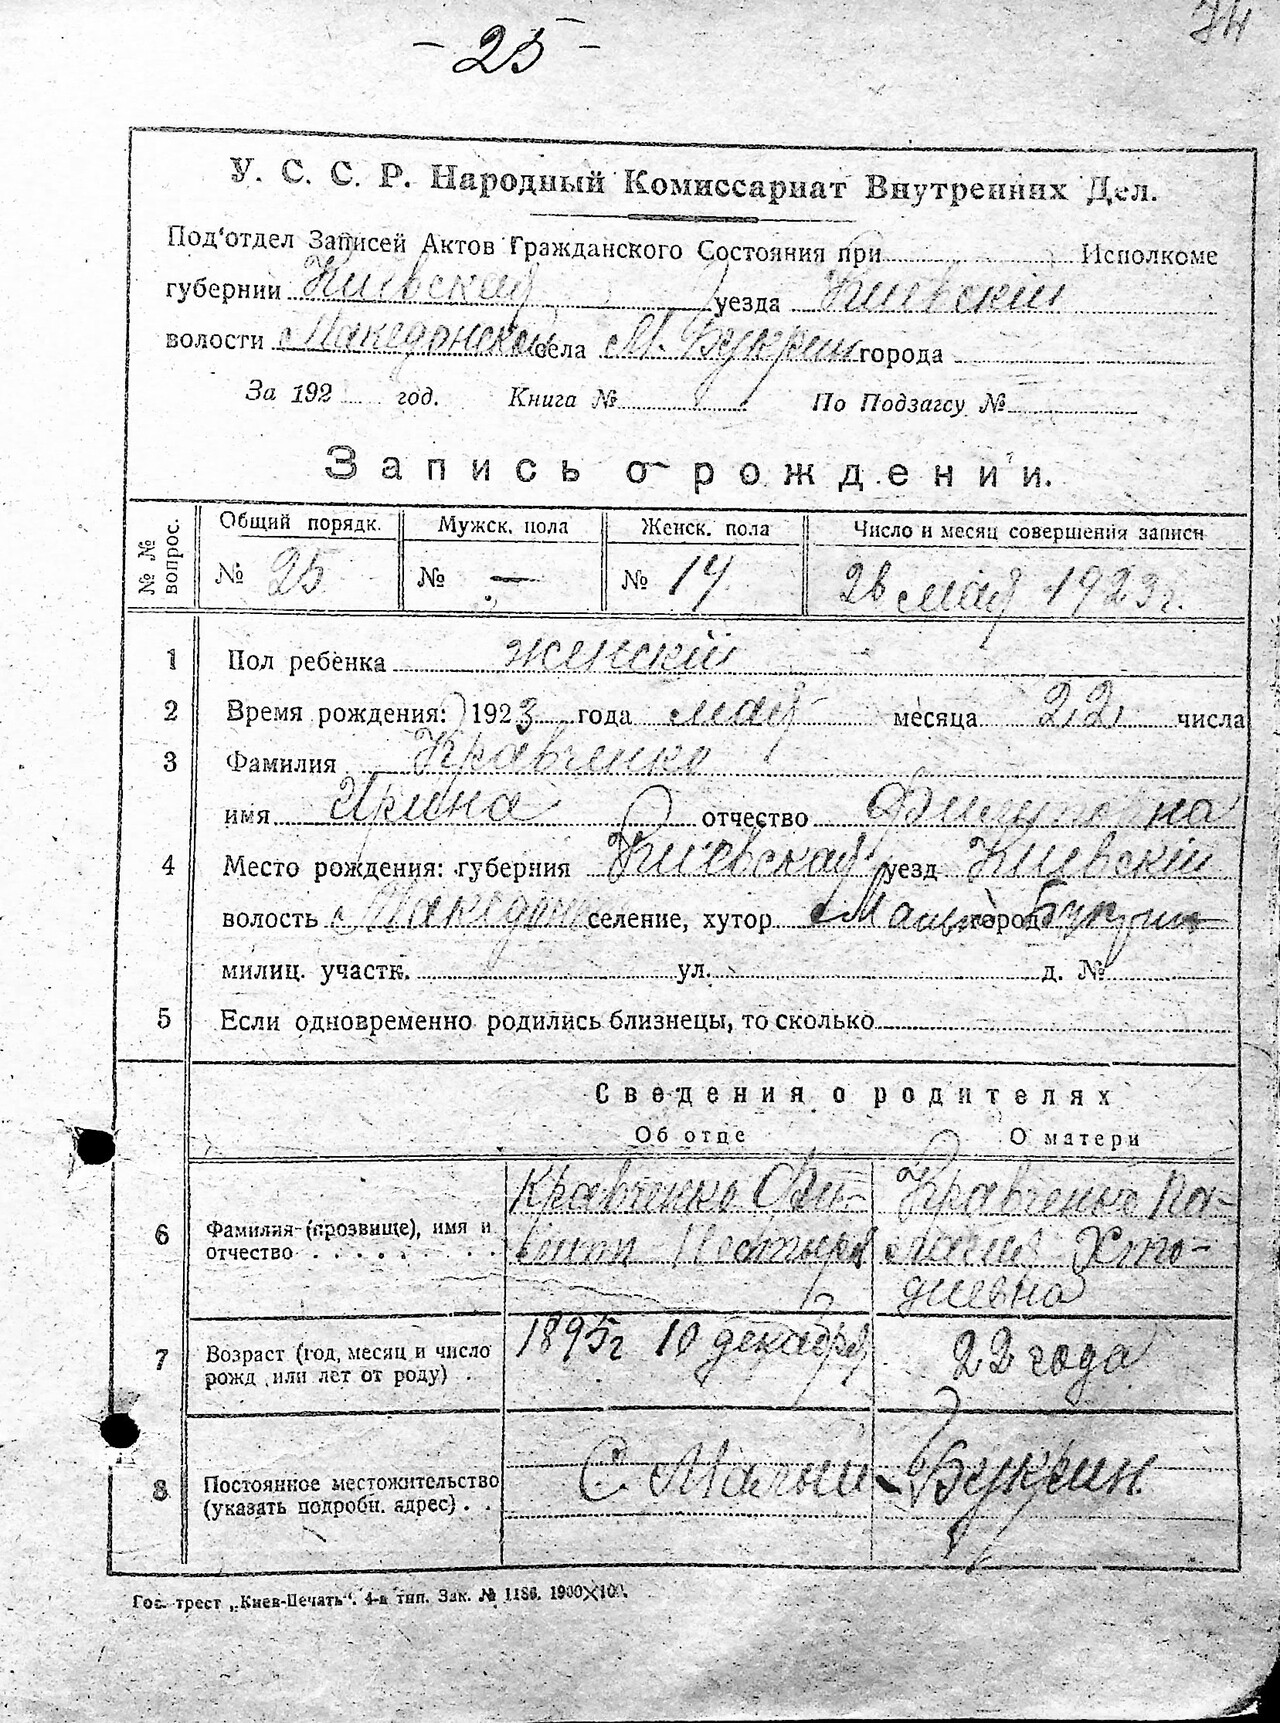 - 25 -
74
У. С. С. Р. Народный Комиссариат Внутренних Дел.
Под‘отдел Записей Актов Гражданского Состояния при Исполкоме
губернии Киевская уезда Киевскій
волости Македонской села М. Букрин города
За 192 год. Книга № По Подзагсу №
Запись о рождении.
№ № вопрос. Общий порядк. Мужск. пола Женск. пола Число и месяц совершения записи
№ 25 № — № 14 мая 1923 г.
1 Пол ребенка женскій
2 Время рождения: 1923 года мая месяца 22 числа
3 Фамилия Кравченко
имя Ирина отчество
4 Место рождения: губерния Киевская уезд Киевскій
волость селение, хутор Букрин город
милиц. участк. ул. д. №
5 Если одновременно родились близнецы, то сколько
Сведения о родителях
Об отце О матери
6 Фамилия (прозвище), имя и отчество
Кравченко
Кравченко Па-
7 Возраст (год, месяц и число рожд. или лет от роду) .
1895 г 10 декабря
22 года
8 Постоянное местожительство (указать подробн. адрес) . .
С. Малый Букрин.
Гос. трест „Киев-Печать“. 4-я тип. Зак. № 1186. 1900×100.